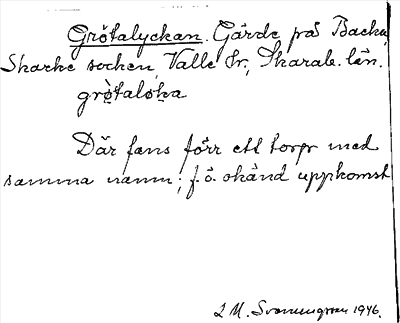 Grötalyckan. Gärde på Backa,
Skarke socken, Valle hr, Skarab. län.
grø̠taløka
Där fans förr ett torp med
samma namn; f. ö. okänd uppkomst
L M. Svanungren 1946.